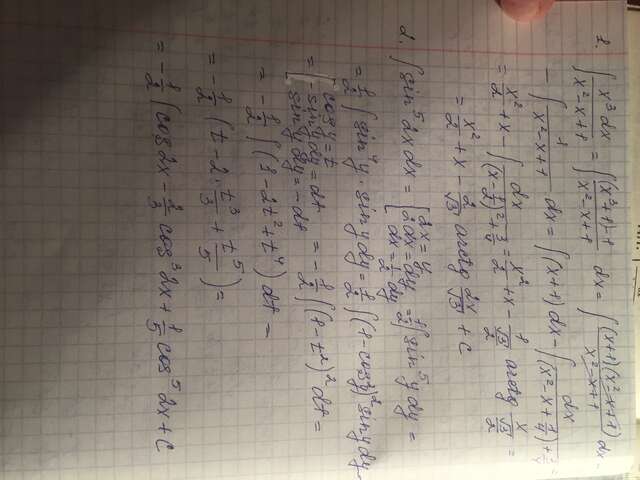 1. ∫ x³dx / (x²-x+1) = ∫ ((x³+1)-1) / (x²-x+1) dx = ∫ (x+1)(x²-x+1) / (x²-x+1) dx -
- ∫ 1 / (x²-x+1) dx = ∫ (x+1) dx - ∫ dx / ((x²-x+1/4)+3/4) =
= x²/2 + x - ∫ dx / ((x-1/2)²+3/4) = x²/2 + x - 1/(√3/2) arctg x/(√3/2) =
= x²/2 + x - 2/√3 arctg 2x/√3 + C
2. ∫ sin⁵2xdx = [2x=y
2dx=dy
dx=1/2 dy] = 1/2 ∫ sin⁵y dy =
= 1/2 ∫ sin⁴y · siny dy = 1/2 ∫ (1-cos²y)² siny dy
= [cosy=t
-siny dy=dt
siny dy=-dt] = -1/2 ∫ (1-t²)² dt =
= -1/2 ∫ (1-2t²+t⁴) dt =
= -1/2 (t-2·t³/3 + t⁵/5) =
= -1/2 (cos2x - 2/3 cos³2x + 1/5 cos⁵2x + C